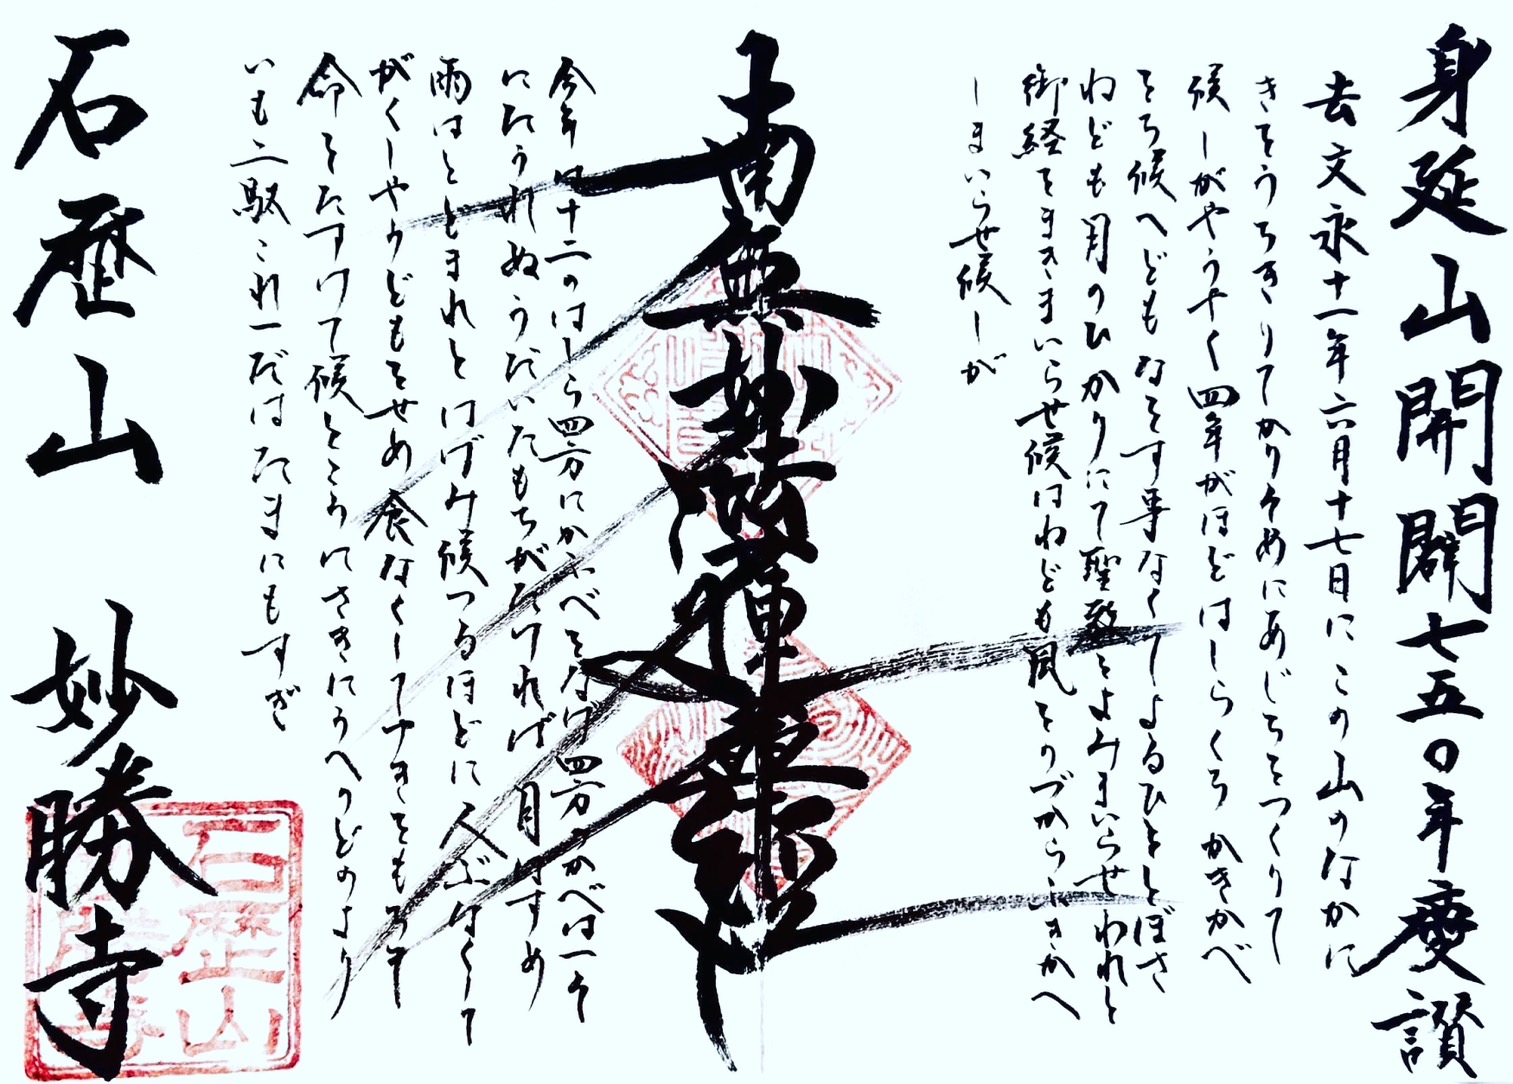 身延山開闢七五〇年慶讃
去文永十一年六月十七日にこの山のなかに
きをうちきりてかりそめにあじちをつくりて
候しがやうやく四年がほどはしらくちかきかべ
をち候へどもなをす事なくてよるひをとぼさ
ねども月のひかりにて聖教をよみまいらせわれと
御経をまきまいらせ候はねども風をのづからふきかへ
しまいらせ候しが
南無妙法蓮華経
今年は十二のはしら四方にかふべをなげ四方のかべは一そ
にたうれぬうだいたもちがたければ月はすめ
雨はとどまれとはげみ候つるほどに人ぶなくして
がくしやうどもをせめ食なくしてゆきをもちて
命をたすけて候ところにさきにうへのどのより
いも二駄これ一だはたまにもすぎ
石歴山 妙勝寺
石歴山